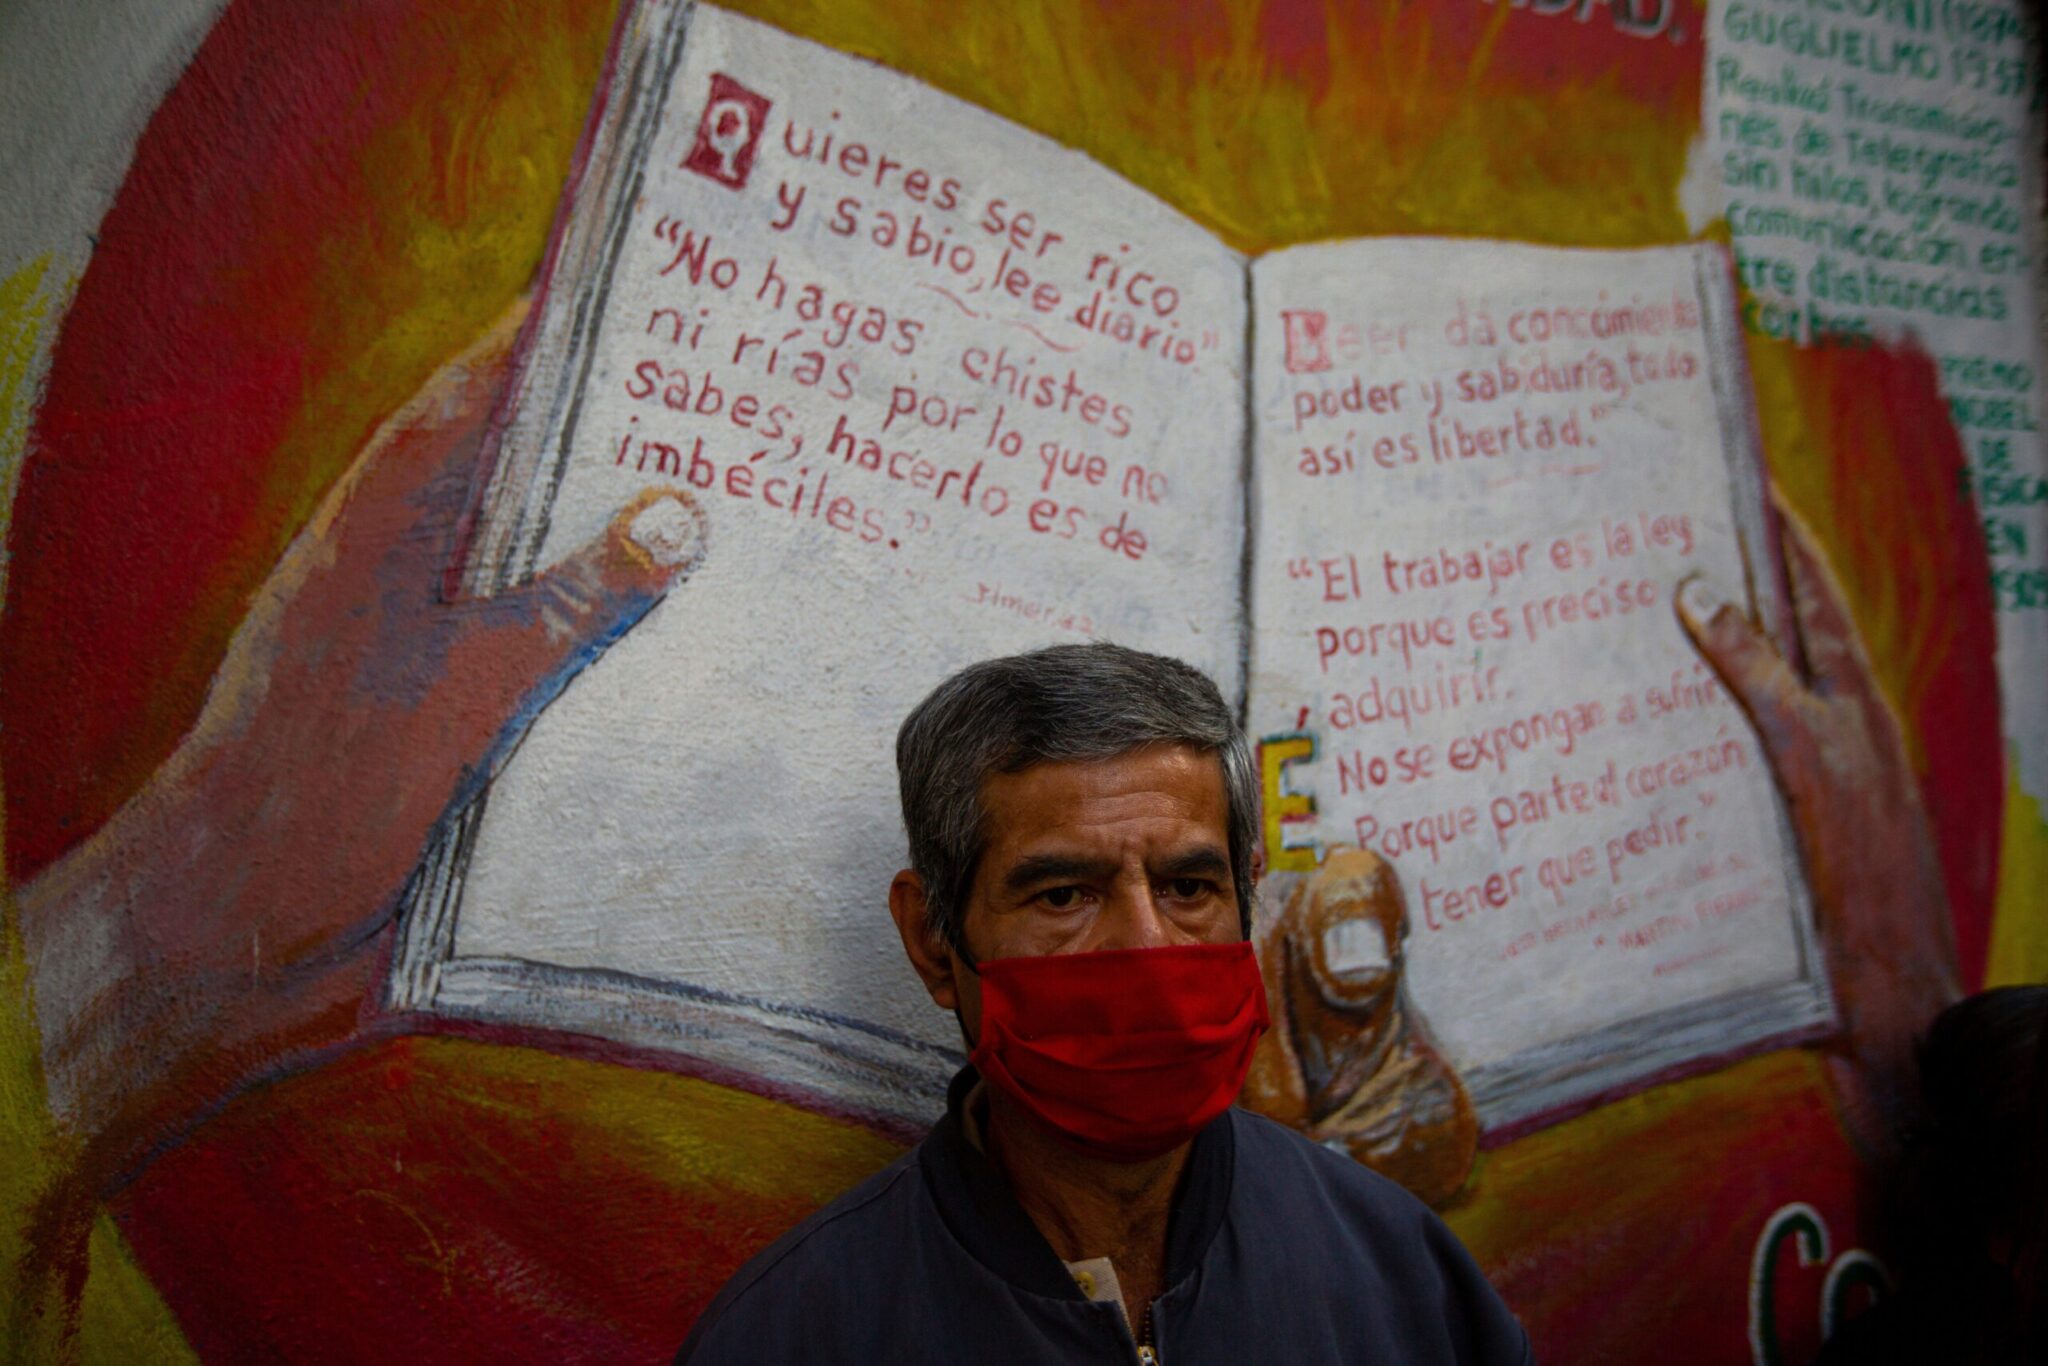 Quieres ser rico
y sabio, lee diario."
"No hagas chistes
ni rías por lo que no
sabes, hacerlo es de
imbéciles."
Leer dá conocimiento
poder y sabiduría, todo
así es libertad."
"El trabajar es la ley
porque es preciso
adquirir.
No se expongan a sufrir
Porque parte el corazón
tener que pedir."
MARTIN FIERRO
É
DAD.
GUGLIELMO 1937
Realizó Transmisio-
nes de Telegrafía
sin hilos, logrando
comunicación en
tre distancias
cortas
PREMIO
NOBEL
DE
FISICA
EN
1909
Co